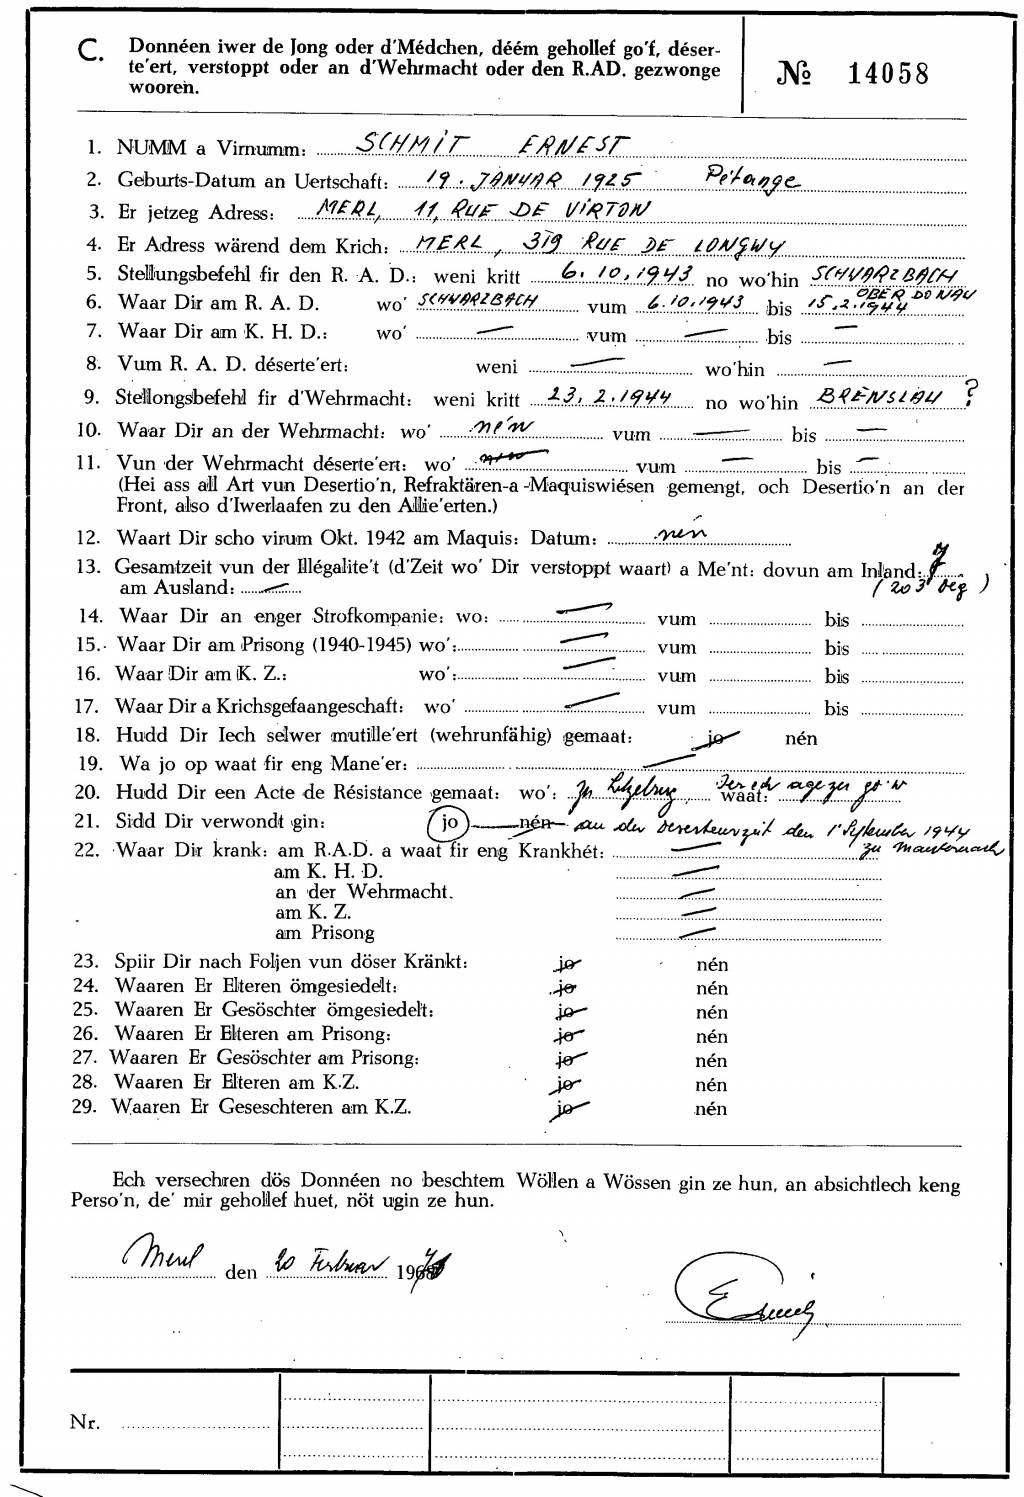 C. Donnéen iwer de Jong oder d'Médchen, déém gehollef go'f, déser-
te'ert, verstoppt oder an d'Wehrmacht oder den R.AD. gezwonge
wooren.
№ 14058
1. NUMM a Virnumm: SCHMIT ERNEST
2. Geburts-Datum an Uertschaft: 19. JANUAR 1925 Pétange
3. Er jetzeg Adress: MERL, 11, RUE DE VIRTON
4. Er Adress wärend dem Krich: MERL, 319 RUE DE LONGWY
5. Stellungsbefehl fir den R. A. D.: weni kritt 6.10.1943 no wo'hin SCHWARZBACH
OBER DONAU
6. Waar Dir am R. A. D. wo' SCHWARZBACH vum 6.10.1943 bis 15.2.1944
7. Waar Dir am K. H. D.: wo' — vum — bis —
8. Vum R. A. D. déserte'ert: weni — wo'hin —
9. Stellongsbefehl fir d'Wehrmacht: weni kritt 23.2.1944 no wo'hin BRENSLAU ?
10. Waar Dir an der Wehrmacht: wo' nén vum — bis —
11. Vun der Wehrmacht déserte'ert: wo' vum — bis —
(Hei ass all Art vun Desertio'n, Refraktären-a -Maquiswiésen gemengt, och Desertio'n an der
Front, also d'Iwerlaafen zu den Allie'erten.)
12. Waart Dir scho virum Okt. 1942 am Maquis: Datum: nén
13. Gesamtzeit vun der Illégalite't (d'Zeit wo' Dir verstoppt waart) a Me'nt: dovun am Inland: 7
am Ausland: — (203 Deg)
14. Waar Dir an enger Strofkompanie: wo: — vum bis
15. Waar Dir am Prisong (1940-1945) wo': — vum bis
16. Waar Dir am K. Z.: wo': — vum bis
17. Waar Dir a Krichsgefaangeschaft: wo' — vum bis
18. Hudd Dir Iech selwer mutille'ert (wehrunfähig) gemaat: jo nén
19. Wa jo op waat fir eng Mane'er: —
20. Hudd Dir een Acte de Résistance gemaat: wo': zu Letzeburg, waat:
21. Sidd Dir verwondt gin: jo nén an der Deserteurzeit den 1 September 1944
22. Waar Dir krank: am R.A.D. a waat fir eng Krankhét: —
am K. H. D. —
an der Wehrmacht. —
am K. Z. —
am Prisong —
23. Spiir Dir nach Foljen vun döser Kränkt: jo nén
24. Waaren Er Elteren ömgesiedelt: jo nén
25. Waaren Er Gesöschter ömgesiedelt: jo nén
26. Waaren Er Elteren am Prisong: jo nén
27. Waaren Er Gesöschter am Prisong: jo nén
28. Waaren Er Elteren am K.Z. jo nén
29. Waaren Er Geseschteren am K.Z. jo nén
Ech versechren dös Donnéen no beschtem Wöllen a Wössen gin ze hun, an absichtlech keng
Perso'n, de' mir gehollef huet, nöt ugin ze hun.
Merl den 20 Februar 19
Nr.